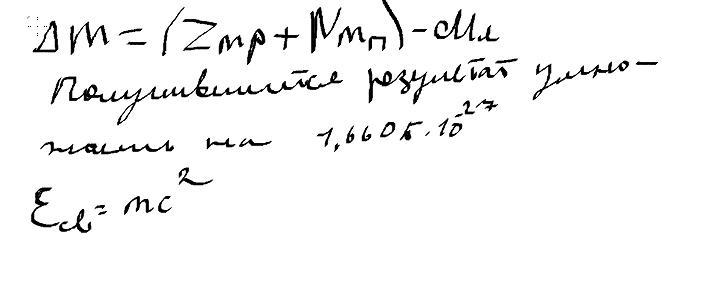 Δm = (Zmp + Nmn) - Mя
Получившийся результат умно-
жаем на 1,6605·10^-27
Eсв = mc²